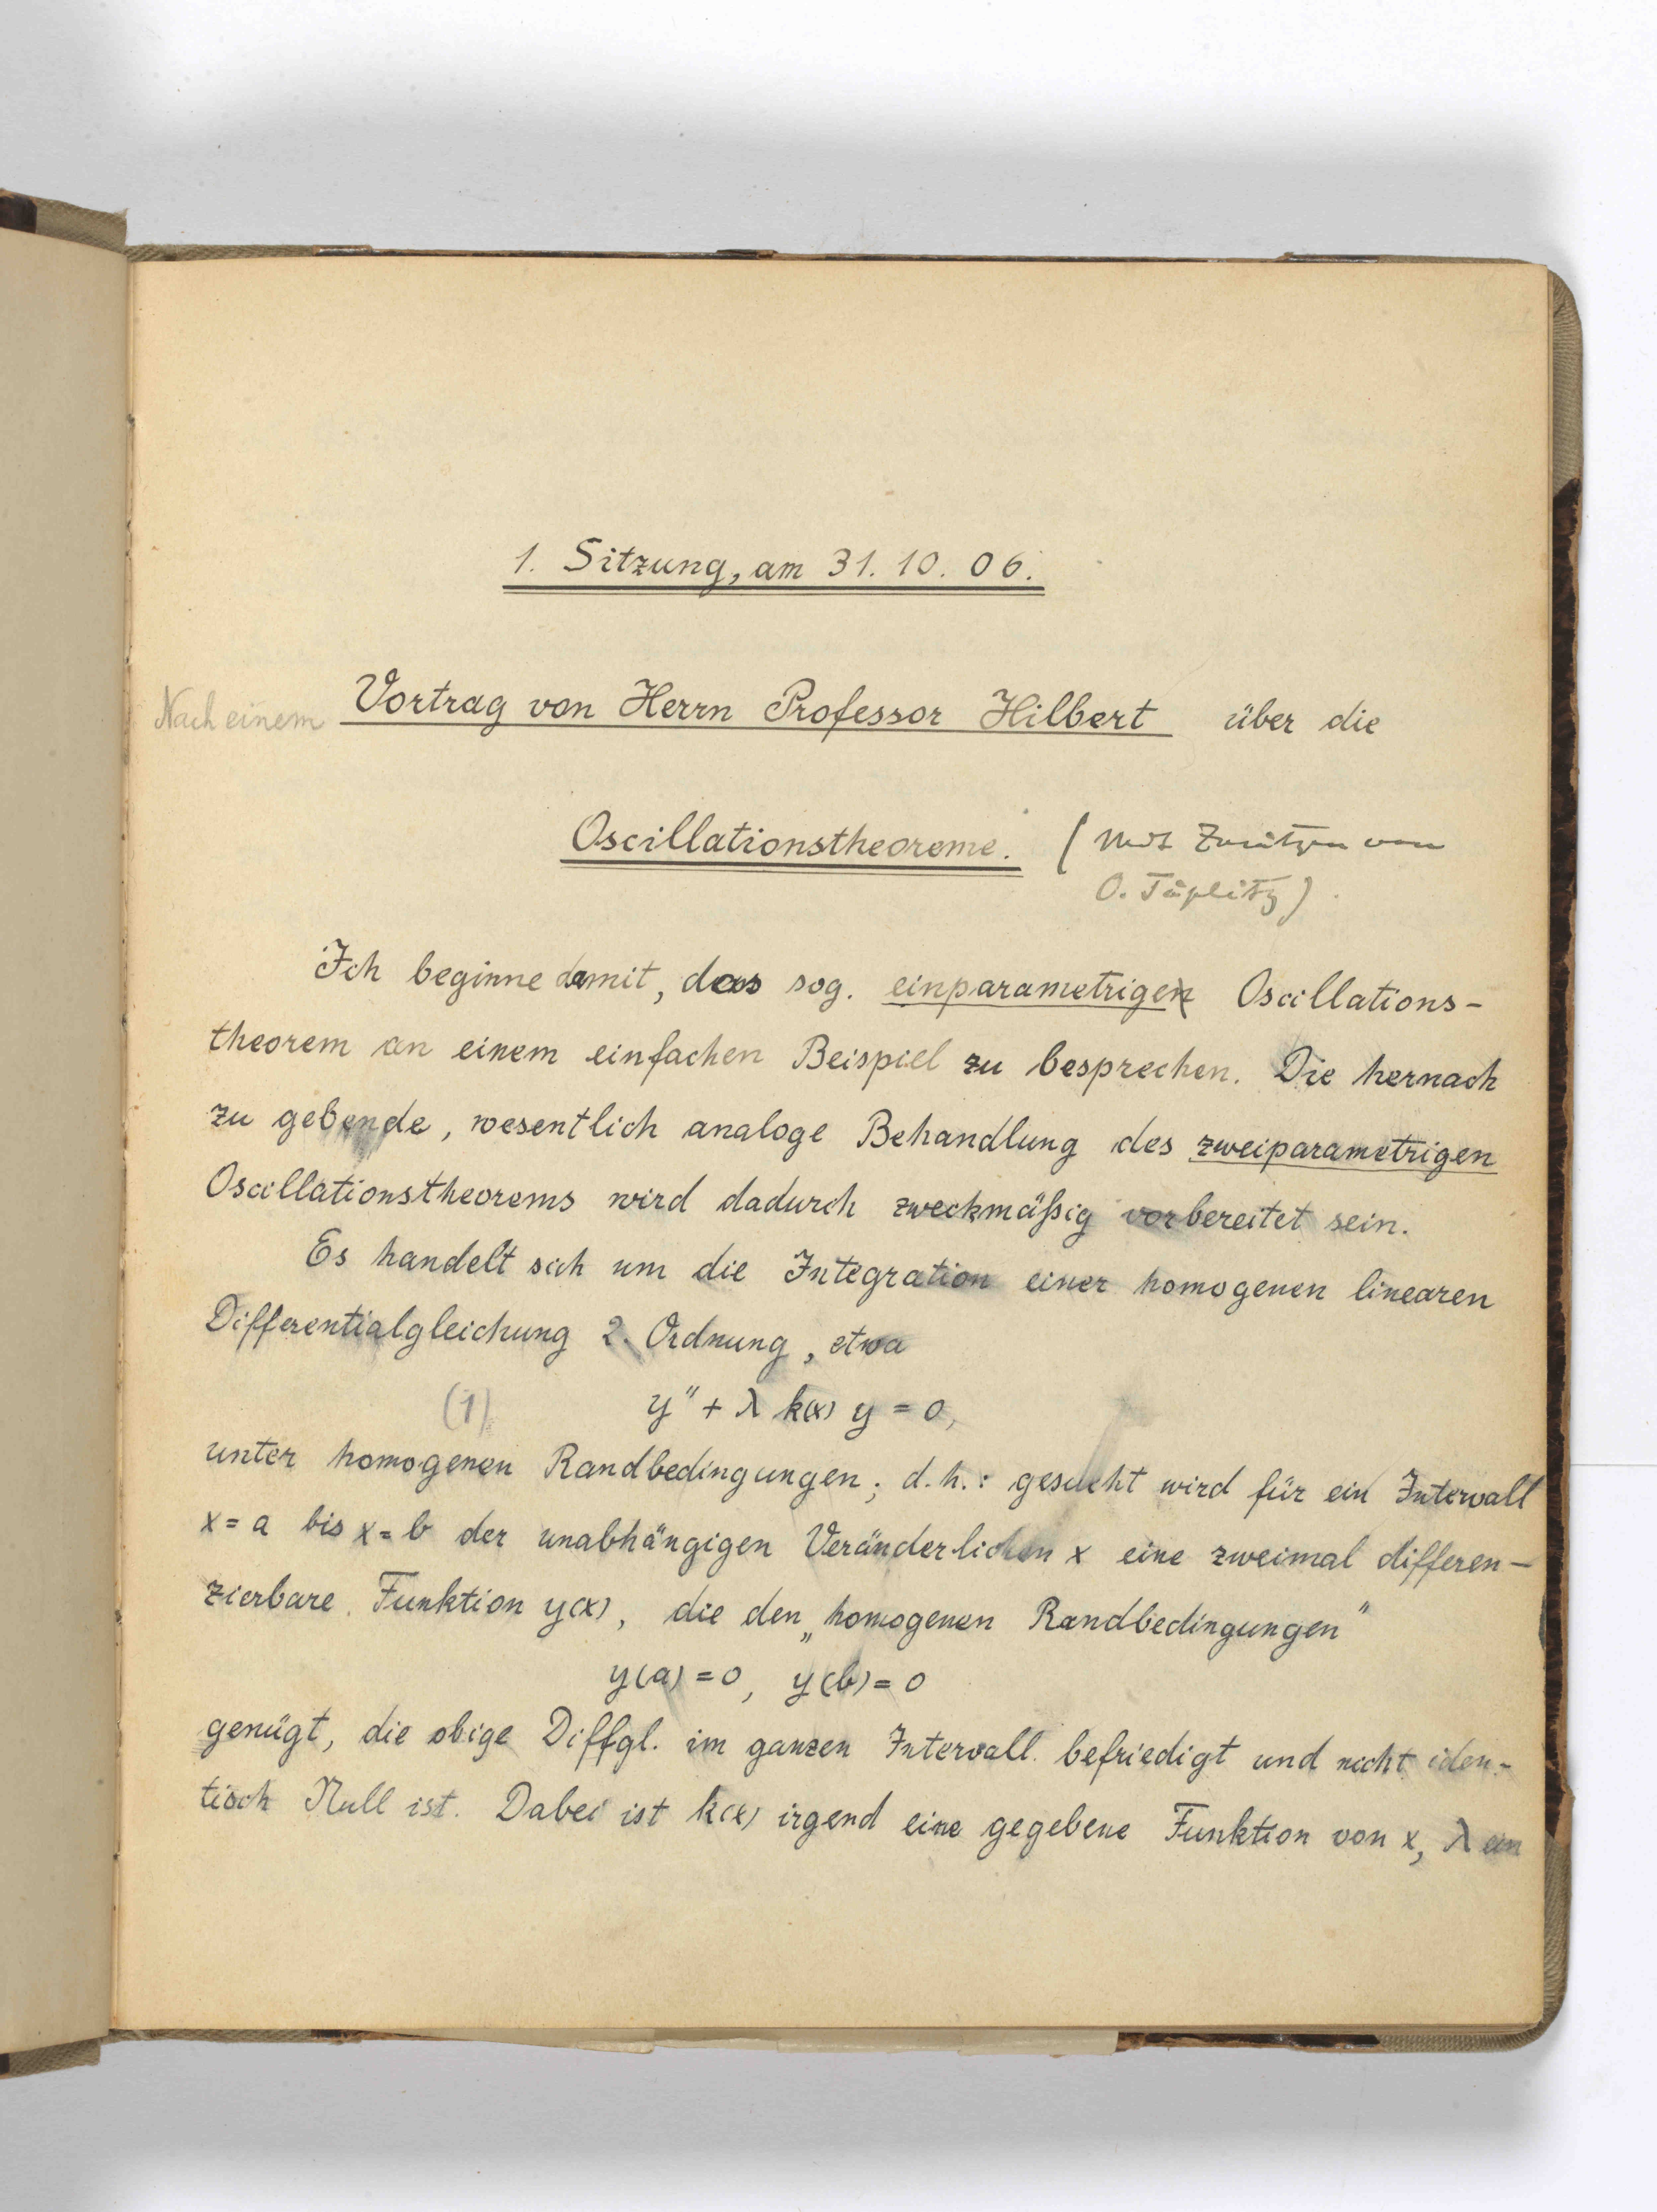 1. Sitzung, am 31. 10. 06.
Nach einem Vortrag von Herrn Professor Hilbert über die
Oscillationstheoreme. (Mit Zusätzen von
O. Töplitz).
Ich beginne damit, das sog. einparametrige Oscillations-
theorem an einem einfachen Beispiel zu besprechen. Die hernach
zu gebende, wesentlich analoge Behandlung des zweiparametrigen
Oscillationstheorems wird dadurch zweckmäßig vorbereitet sein.
Es handelt sich um die Integration einer homogenen linearen
Differentialgleichung 2. Ordnung, etwa
(1) y" + λ k(x) y = 0,
unter homogenen Randbedingungen; d.h.: gesucht wird für ein Intervall
x = a bis x = b der unabhängigen Veränderlichen x eine zweimal differen-
zierbare Funktion y(x), die den „homogenen Randbedingungen"
y(a) = 0, y(b) = 0
genügt, die obige Diffgl. im ganzen Intervall befriedigt und nicht iden-
tisch Null ist. Dabei ist k(x) irgend eine gegebene Funktion von x, λ ein